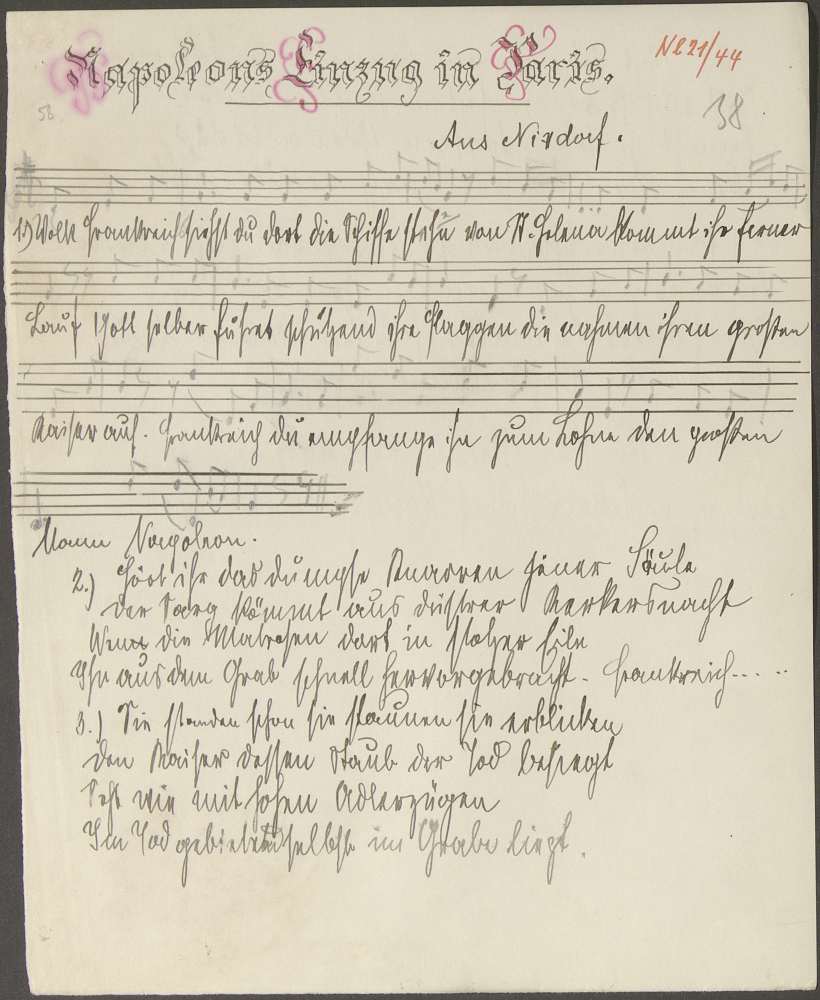 Napoleons Einzug in Paris.
Nl 21/44
58
38
Aus Nixdorf.
1.) Volk Frankreich siehst du dort die Schiffe stehn von St. Helena kommt ihr ferner
Lauf Gott selber führet schützend ihre Flaggen die nahmen ihren großen
Kaiser auf. Frankreich du empfange ihn zum Lohne den großen
Mann Napoleon.
2.) Hört ihr das dumpfe Knarren jener Säule
der Sarg kömmt aus düstrer Kerkersnacht
Wenn die Matrosen dort in stolzer Eile
Ihn aus dem Grab schnell hervorgebracht - Frankreich.....
3.) Sie standen schon sie staunen sie erblicken
den Kaiser dessen Staub der Tod besiegt
Seht wie mit hohen Adlerzügen
Im Tod gebietend selbst im Grabe liegt.